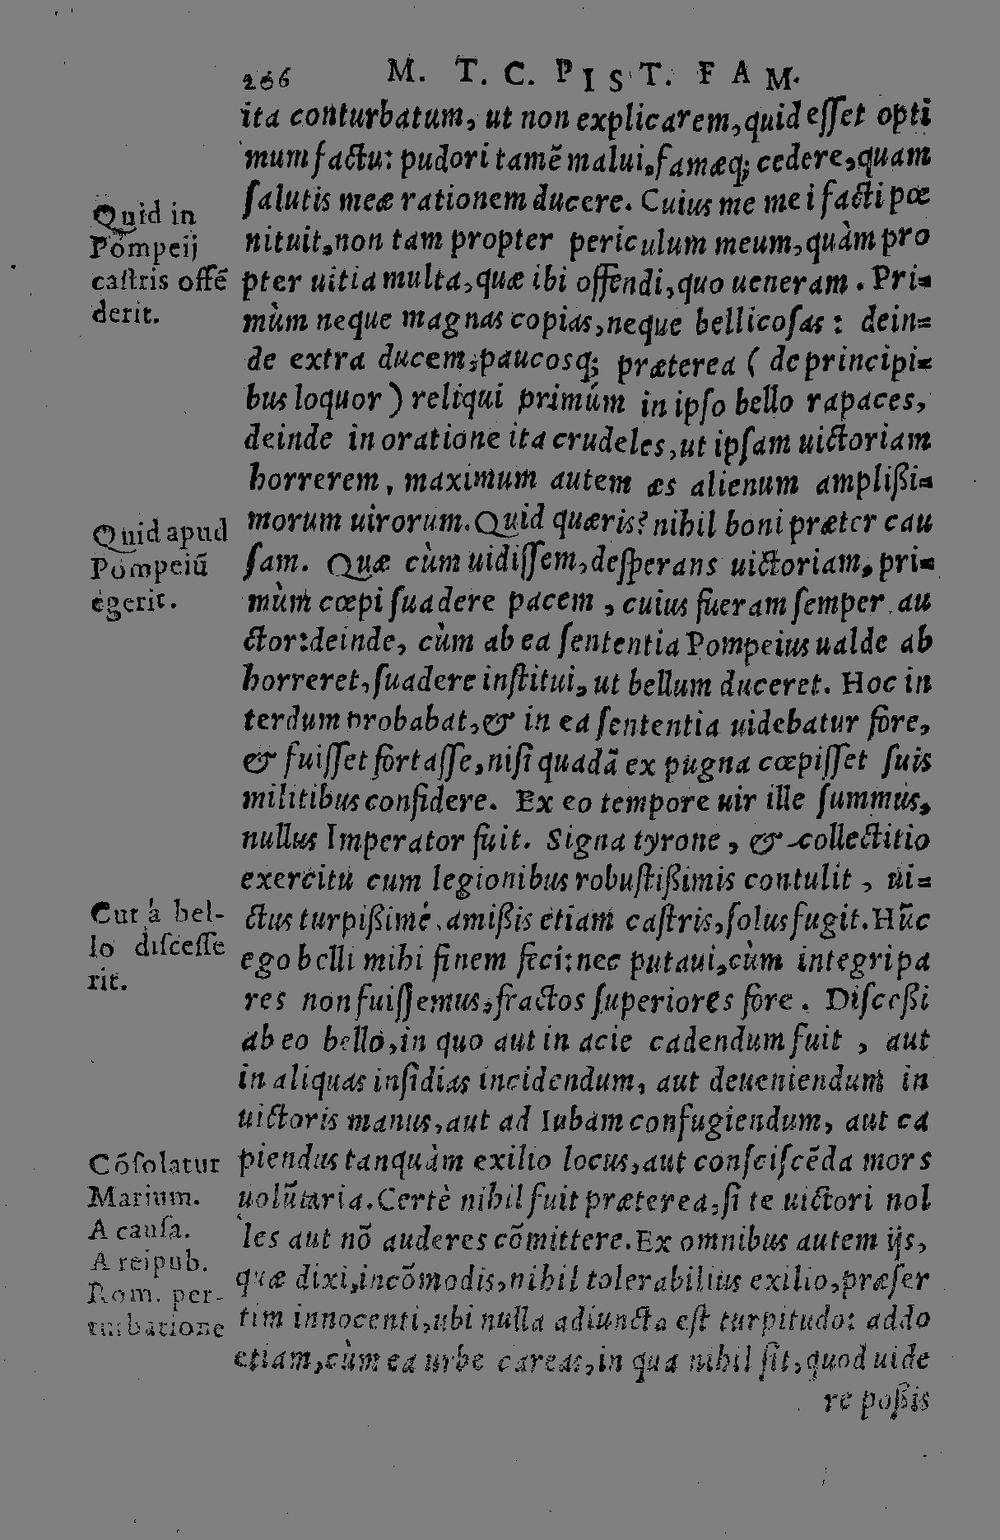 266 M. T. C. PIST. FAM.
ita conturbatum, ut non explicarem, quid eſſet opti
mum factu: pudori tamē malui, famæq; cedere, quam
ſalutis meæ rationem ducere. Cuius me mei facti pœ
nituit, non tam propter periculum meum, quàm pro
pter uitia multa, quæ ibi offendi, quo ueneram. Pri=
mùm neque magnas copias, neque bellicoſas: dein=
de extra ducem, paucosq; præterea (de principi=
bus loquor) reliqui primúm in ipſo bello rapaces,
deinde in oratione ita crudeles, ut ipſam uictoriam
horrerem, maximum autem æs alienum amplißi=
morum uirorum. Quid quæris? nihil boni præter cau
ſam. Quæ cùm uidiſſem, deſperans uictoriam, pri=
mùm cœpi ſuadere pacem, cuius fueram ſemper au
ctor: deinde, cùm ab ea ſententia Pompeius ualde ab
horreret, ſuadere inſtitui, ut bellum duceret. Hoc in
terdum probabat, & in ea ſententia uidebatur fore,
& fuiſſet fortaſſe, niſi quadā ex pugna cœpiſſet ſuis
militibus confidere. Ex eo tempore uir ille ſummus,
nullus Imperator fuit. Signa tyrone, & collectitio
exercitu cum legionibus robuſtißimis contulit, ui=
ctus turpißimé, amißis etiam caſtris, ſolus fugit. Hūc
ego belli mihi finem feci: nec putaui, cùm integri pa
res non fuiſſemus, fractos ſuperiores fore. Diſceßi
ab eo bello, in quo aut in acie cadendum fuit, aut
in aliquas inſidias incidendum, aut deueniendum in
uictoris manus, aut ad Iubam confugiendum, aut ca
piendus tanquàm exilio locus, aut conſciſcēda mors
uolūtaria. Certè nihil fuit præterea, ſi te uictori nol
les aut nō auderes cōmittere. Ex omnibus autem ijs,
quæ dixi, incōmodis, nihil tolerabilius exilio, præſer
tim innocenti, ubi nulla adiuncta eſt turpitudo: addo
etiam, cùm ea urbe careas, in qua nihil ſit, quod uide
re poßis
Quid in
Pompeij
caſtris offē
derit.
Quid apud
Pompeiū
egerit.
Cur à bel-
lo diſceſſe
rit.
Cōſolatur
Marium.
A cauſa.
A reipub.
Rom. per-
turbatione